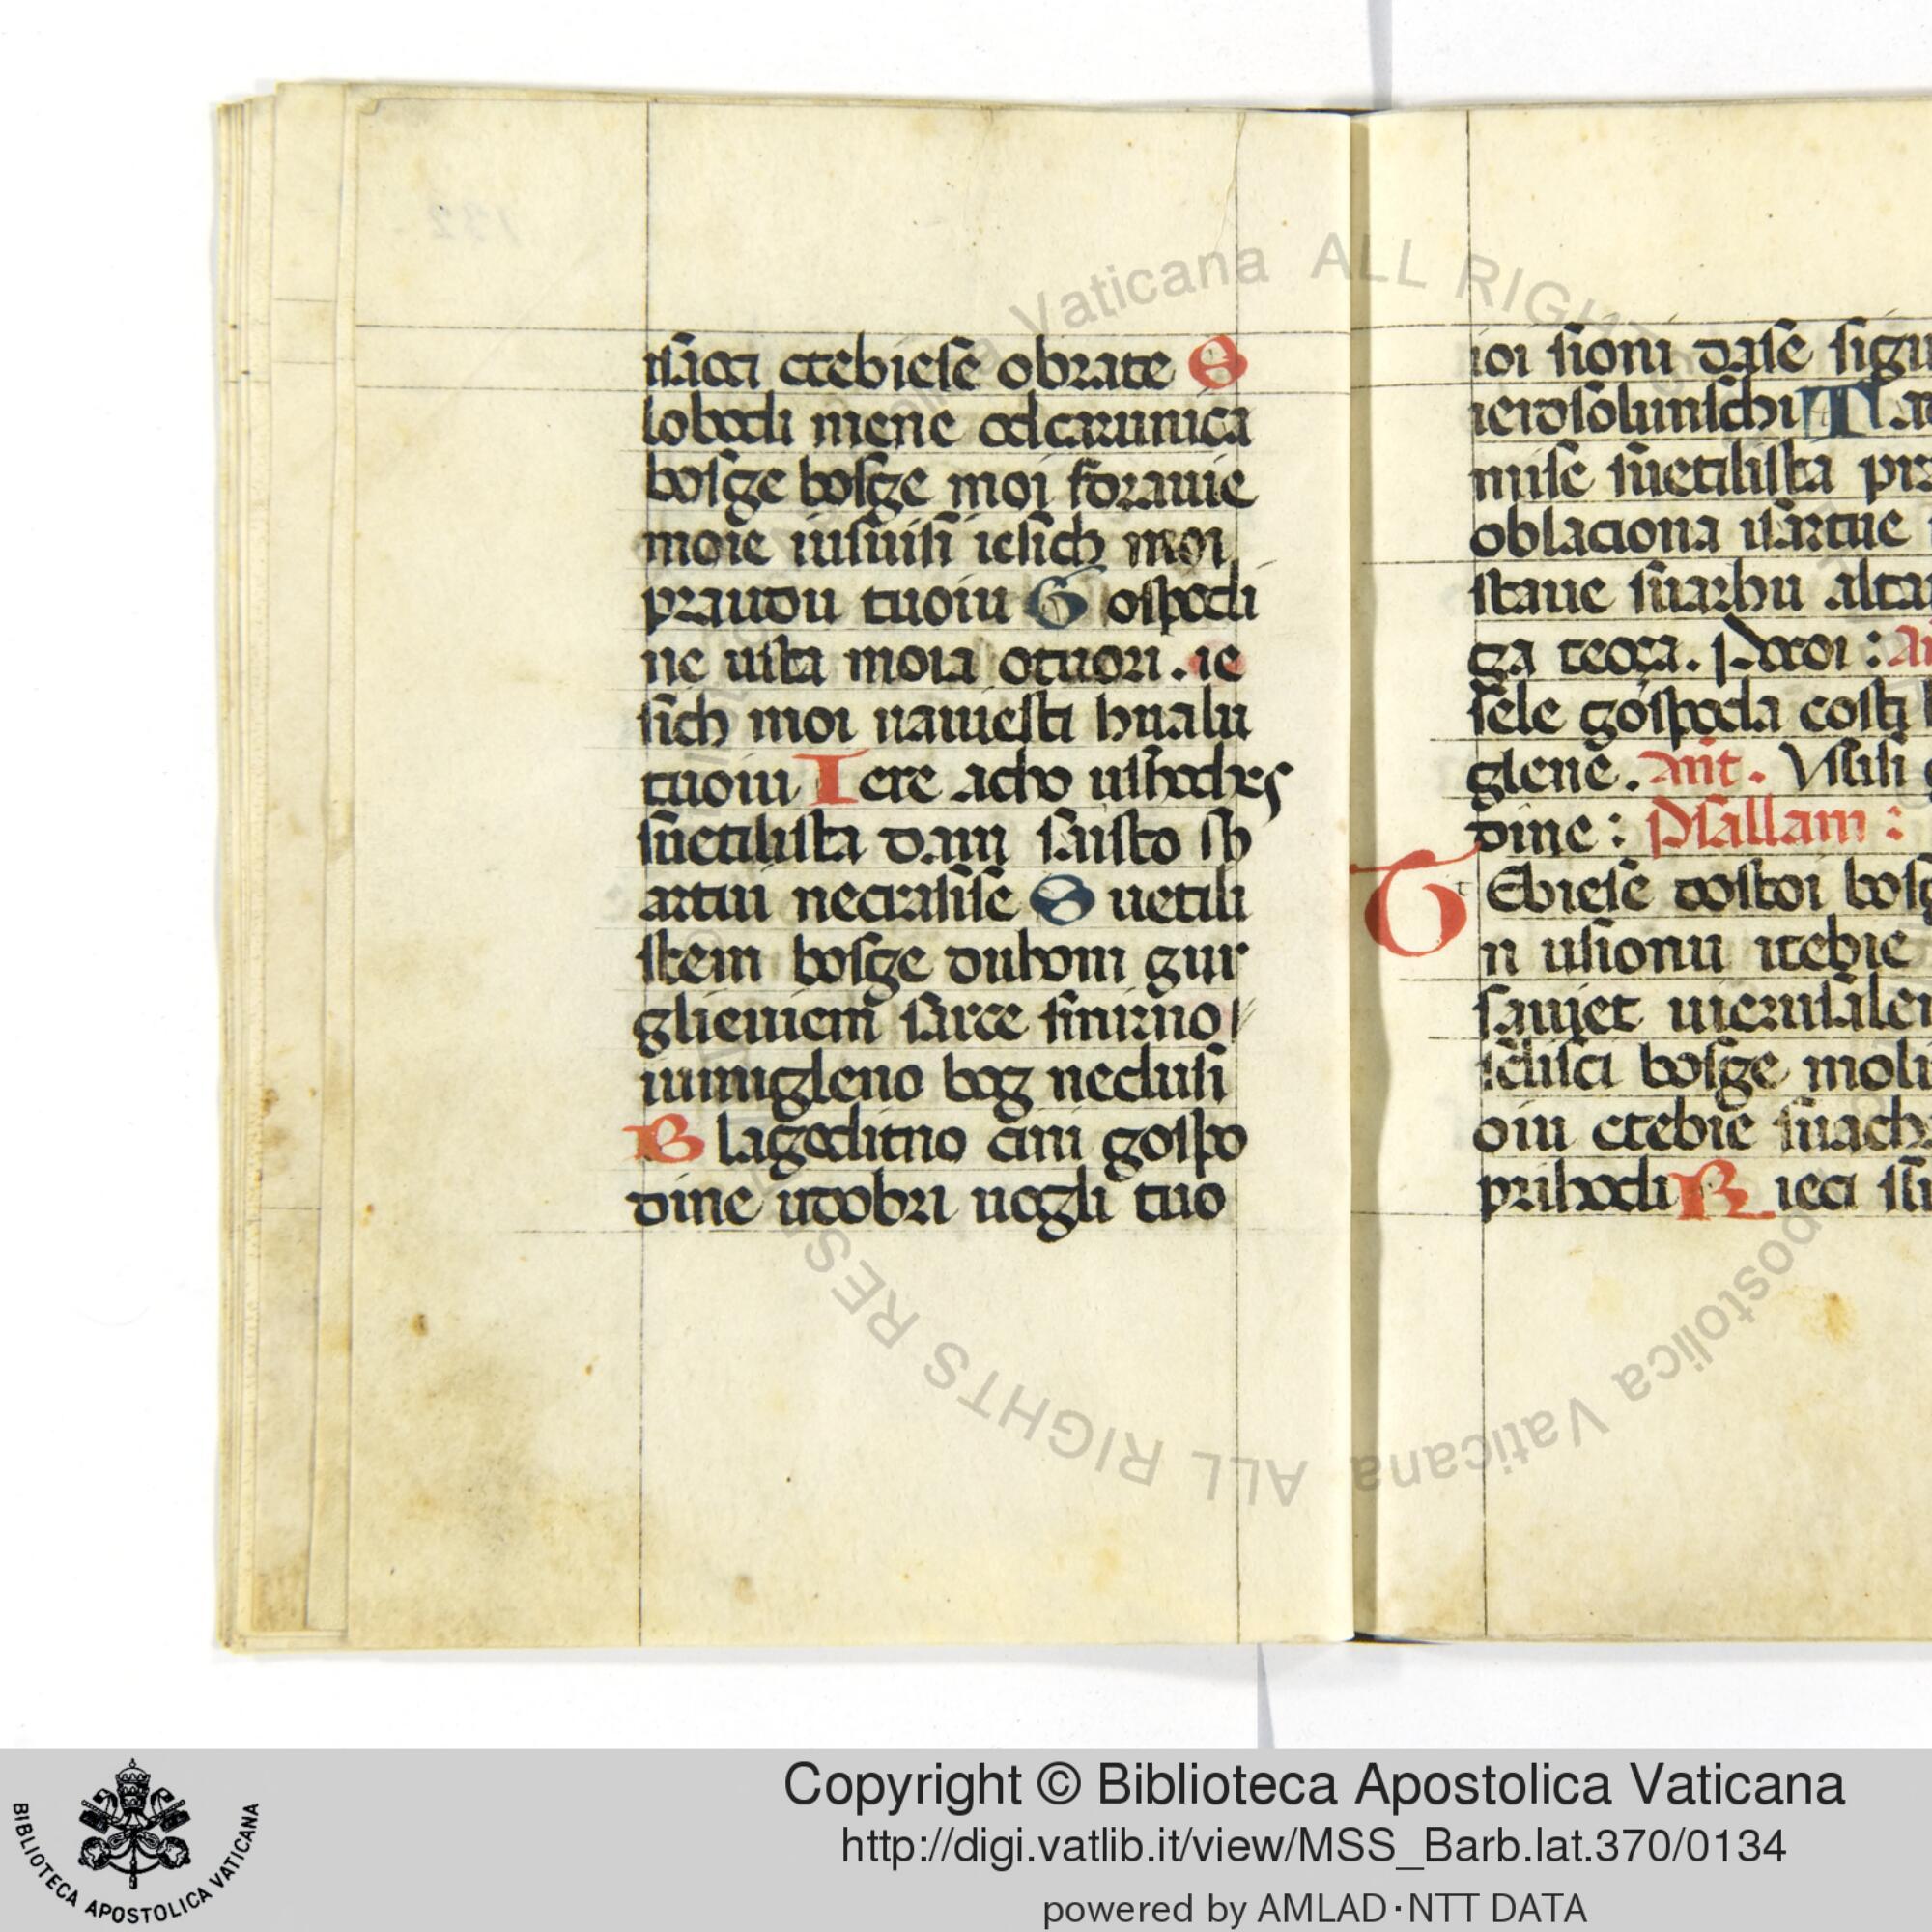 nsacci ctebiese obrate S
lobodi mene odcarunića
bosge bosge moi ſorauie
moie iusuisi iesich moi
praudu tuoiu G ospodi
ne usta moia otuori. ie
sich moi nauiesti hualu
tuoiu Iere acho ushodies
suetilista dam saisto sh
artui necrasise S uetili
stem bosge duhom gur
gliewiem sarce smirno
iumigleno bog neclusi
B lagoditno cini gospo
dine udobri uogli tuo
ioi sioni dase sigu
ierosolimschi T
mise suetilista pr
oblaciona isartue
staue suarhu alta
ga teoca. Poroi :
sele gospoda costi
glene. Ant. Usliši
dine : Psallam :
T Ebiese dostoi bosg
n usionu itebie
sauiet uierusale
islisci bosge moli
oiu ctebie suach
prihodi R ieci
Vaticana ALL RIGHTS
ALL RIGHTS RES
Apostolica Vaticana
BIBLIOTECA APOSTOLICA VATICANA
Copyright © Biblioteca Apostolica Vaticana
http://digi.vatlib.it/view/MSS_Barb.lat.370/0134
powered by AMLAD·NTT DATA